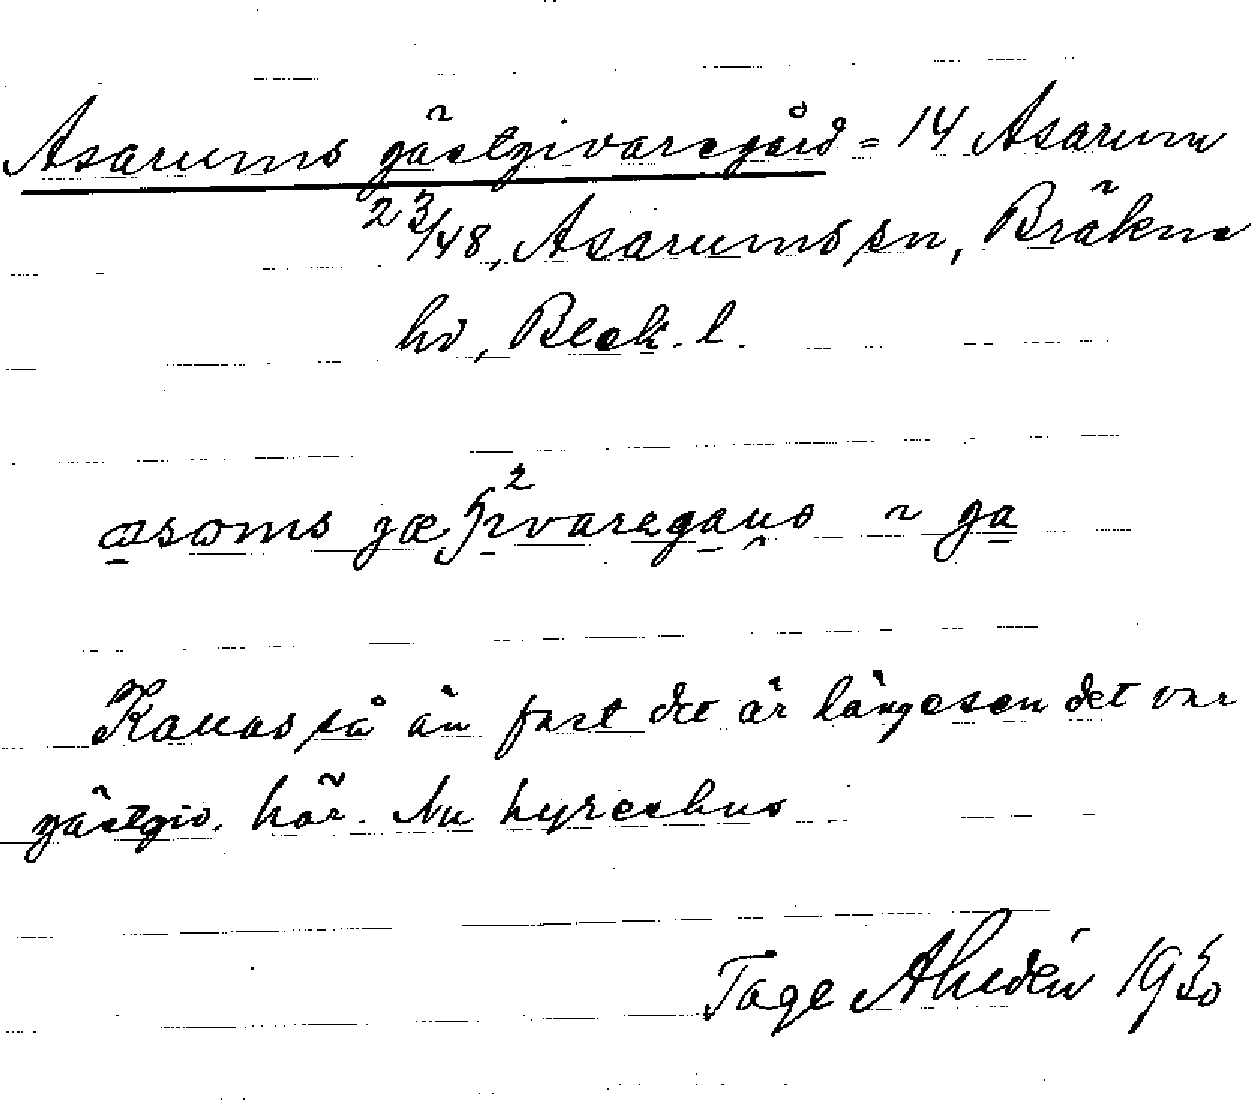 Asarums gästgivaregård = 14 Asarum
2 3/48, Asarums sn, Bräkne
hd, Blek. l.
Kallas så än fast det är längesen det var
gästgiv. här. Nu hyreshus
Tage Ahldén 1950